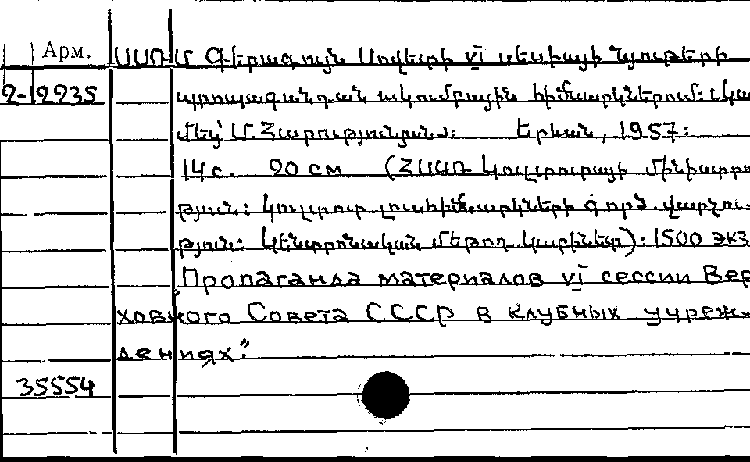 Арм. ՍՍՌՄ Գերագույն Սովետի VI սեսիայի նյութերի
2-12235 պրոպագանդան ակումբային հիմնարկներում: (Կազ
մեց՝ Մ. Հարությունյան): Երևան, 1957:
14с. 20 см (ՀՍՍՌ Կուլտուրայի մինիստրո
թյուն: Կուլտուր լուսհիմնարկների գործ. վարչու
թյուն: Կենտրոնական մեթոդ. կաբինետ): 1500 экз.
„Пропаганда материалов VI сессии Вер
ховного Совета СССР в клубных учреж-
дениях".
35554